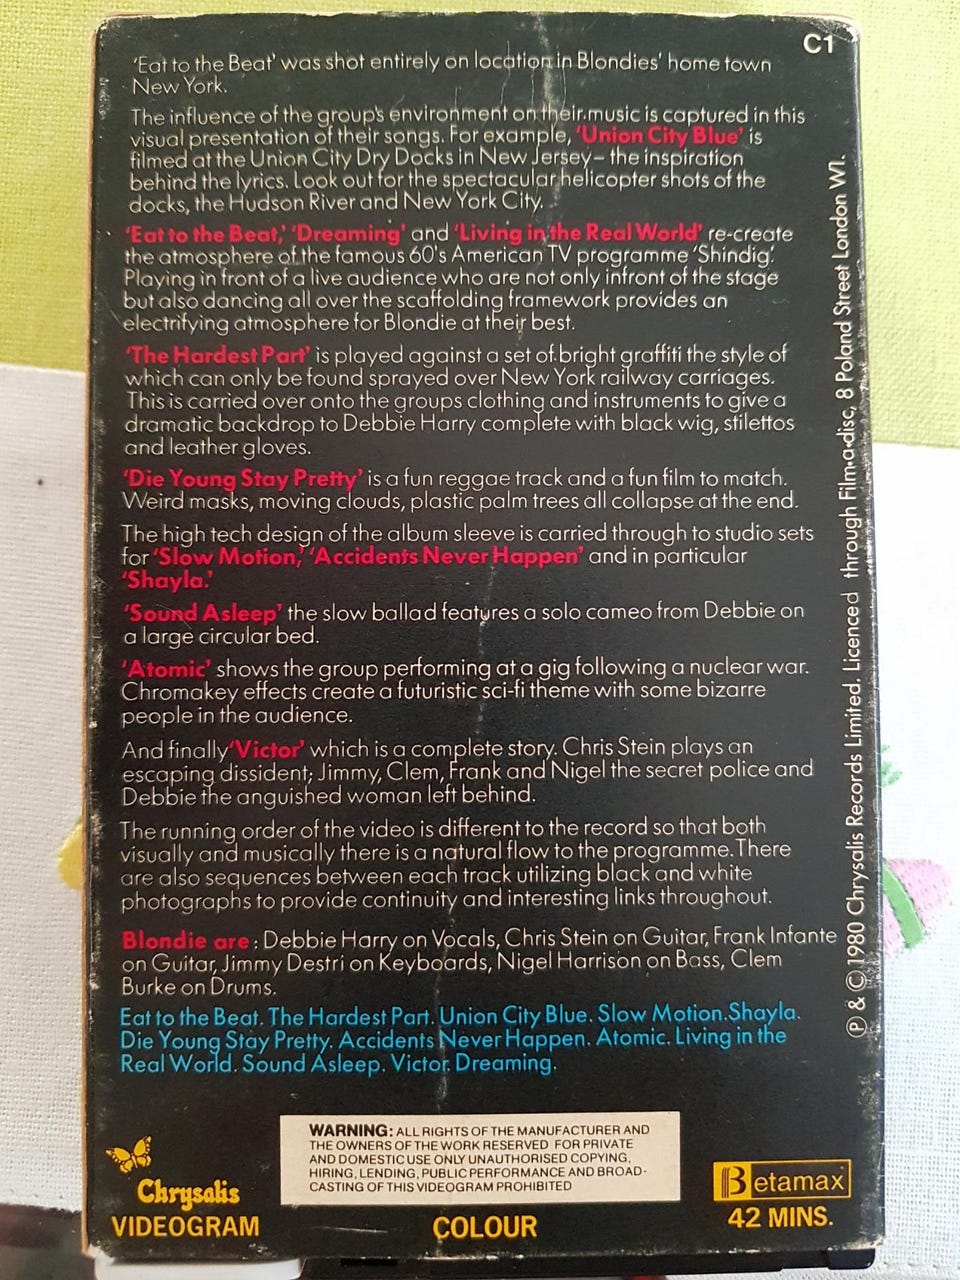 C1
'Eat to the Beat' was shot entirely on location in Blondies' home town
New York.
The influence of the group's environment on their music is captured in this
visual presentation of their songs. For example, 'Union City Blue' is
filmed at the Union City Dry Docks in New Jersey – the inspiration
behind the lyrics. Look out for the spectacular helicopter shots of the
docks, the Hudson River and New York City.
'Eat to the Beat,' 'Dreaming' and 'Living in the Real World' re-create
the atmosphere of the famous 60's American TV programme 'Shindig'.
Playing in front of a live audience who are not only infront of the stage
but also dancing all over the scaffolding framework provides an
electrifying atmosphere for Blondie at their best.
'The Hardest Part' is played against a set of bright graffiti the style of
which can only be found sprayed over New York railway carriages.
This is carried over onto the groups clothing and instruments to give a
dramatic backdrop to Debbie Harry complete with black wig, stilettos
and leather gloves.
'Die Young Stay Pretty' is a fun reggae track and a fun film to match.
Weird masks, moving clouds, plastic palm trees all collapse at the end.
The high tech design of the album sleeve is carried through to studio sets
for 'Slow Motion,' 'Accidents Never Happen' and in particular
'Shayla.'
'Sound Asleep' the slow ballad features a solo cameo from Debbie on
a large circular bed.
'Atomic' shows the group performing at a gig following a nuclear war.
Chromakey effects create a futuristic sci-fi theme with some bizarre
people in the audience.
And finally 'Victor' which is a complete story. Chris Stein plays an
escaping dissident; Jimmy, Clem, Frank and Nigel the secret police and
Debbie the anguished woman left behind.
The running order of the video is different to the record so that both
visually and musically there is a natural flow to the programme. There
are also sequences between each track utilizing black and white
photographs to provide continuity and interesting links throughout.
Blondie are : Debbie Harry on Vocals, Chris Stein on Guitar, Frank Infante
on Guitar, Jimmy Destri on Keyboards, Nigel Harrison on Bass, Clem
Burke on Drums.
Eat to the Beat. The Hardest Part. Union City Blue. Slow Motion. Shayla.
Die Young Stay Pretty. Accidents Never Happen. Atomic. Living in the
Real World. Sound Asleep. Victor. Dreaming.
℗ & © 1980 Chrysalis Records Limited. Licenced through Film-a-disc, 8 Poland Street London W1.
WARNING: ALL RIGHTS OF THE MANUFACTURER AND
THE OWNERS OF THE WORK RESERVED FOR PRIVATE
AND DOMESTIC USE ONLY UNAUTHORISED COPYING,
HIRING, LENDING, PUBLIC PERFORMANCE AND BROAD-
CASTING OF THIS VIDEOGRAM PROHIBITED
Chrysalis
VIDEOGRAM
COLOUR
Betamax
42 MINS.